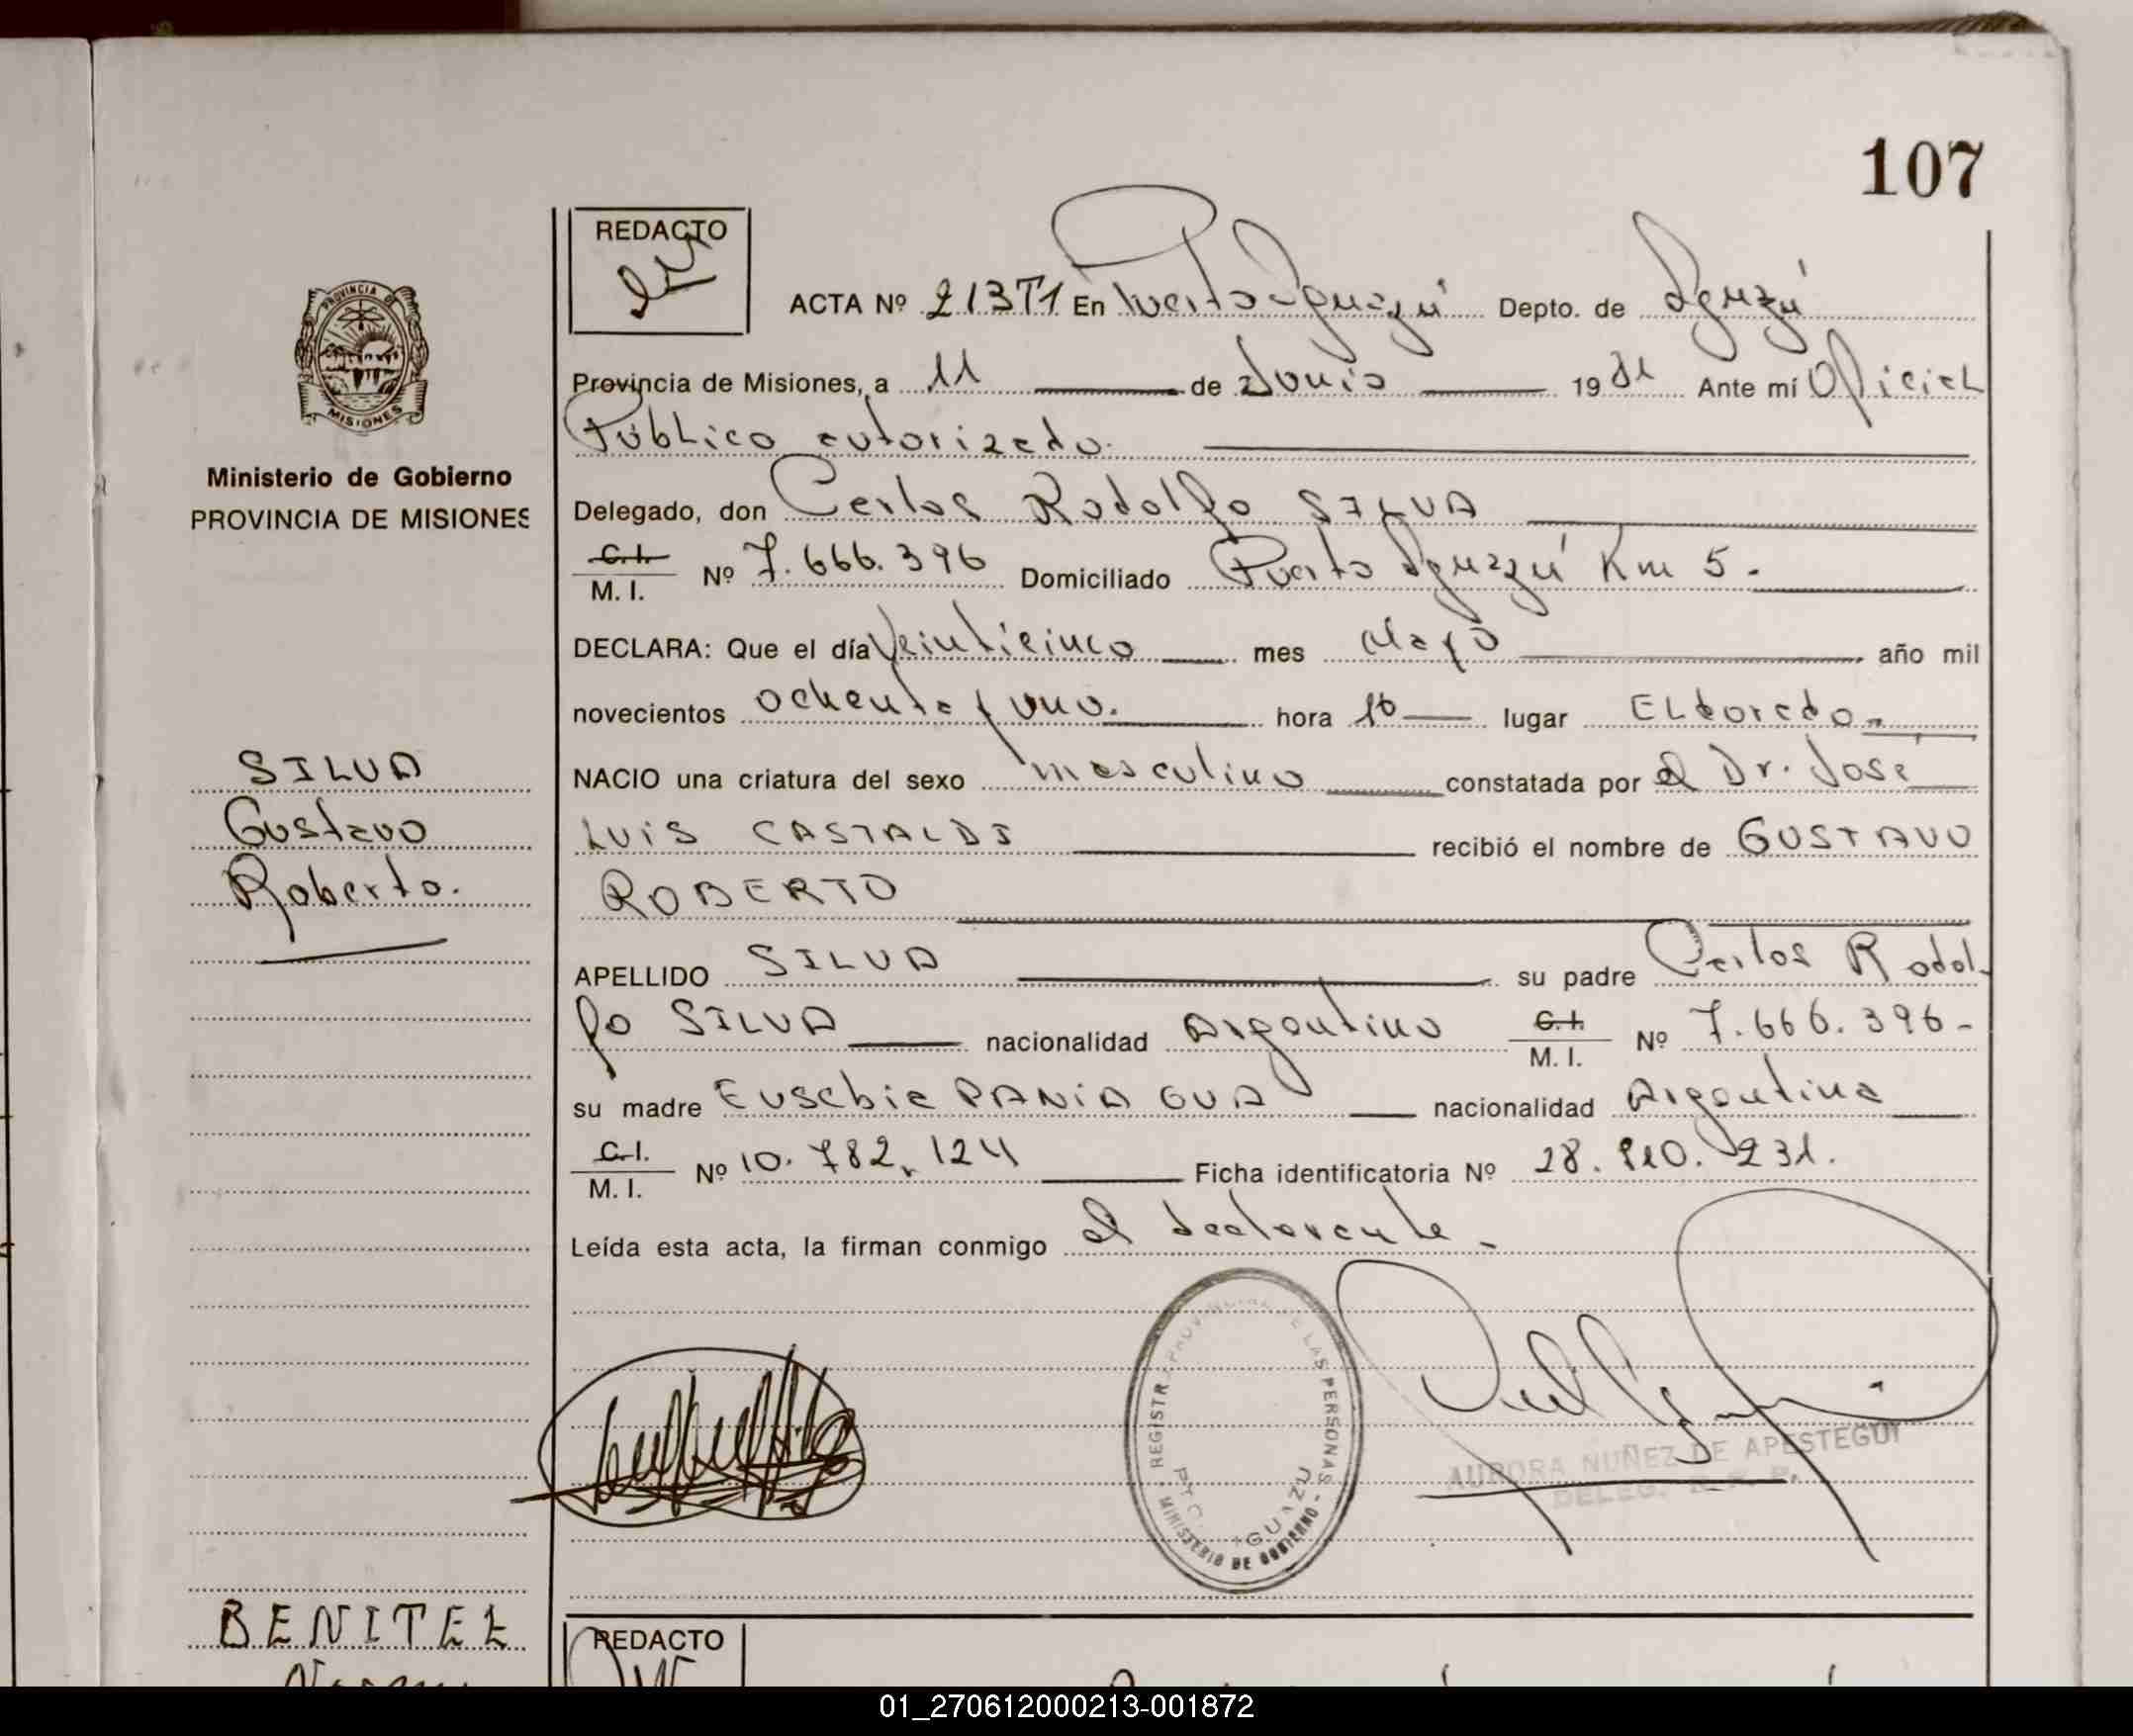 107
REDACTO
ACTA Nº 213T1 En Puerto Iguazú Depto. de Iguazú
Provincia de Misiones, a 11 de Junio 1981 Ante mí Oficial
Público autorizado.
PROVINCIA DE
MISIONES
Ministerio de Gobierno
PROVINCIA DE MISIONES
Delegado, don Carlos Rodolfo SILVA
C.I. / M. I. Nº 7.666.396 Domiciliado Puerto Iguazú Km 5.
DECLARA: Que el día Veinticinco mes Mayo año mil
novecientos ochenta y uno. hora 16 lugar ELdorado.
SILVA
Gustavo
Roberto.
NACIO una criatura del sexo masculino constatada por el Dr. José
LUIS CASTALDI recibió el nombre de GUSTAVO
ROBERTO
APELLIDO SILVA su padre Carlos Rodol-
fo SILVA nacionalidad Argentino C.I. / M. I. Nº 7.666.396-
su madre Eusebia PANIAGUA nacionalidad Argentina
C.I. / M. I. Nº 10.782.124 Ficha identificatoria Nº 28.810.231.
Leída esta acta, la firman conmigo el declarante.
REGISTRO PROVINCIAL DE LAS PERSONAS
PTO. IGUAZU
MINISTERIO DE GOBIERNO
AURORA NUÑEZ DE APESTEGUI
DELEG. R. P. P.
BENITEZ
REDACTO
01_270612000213-001872